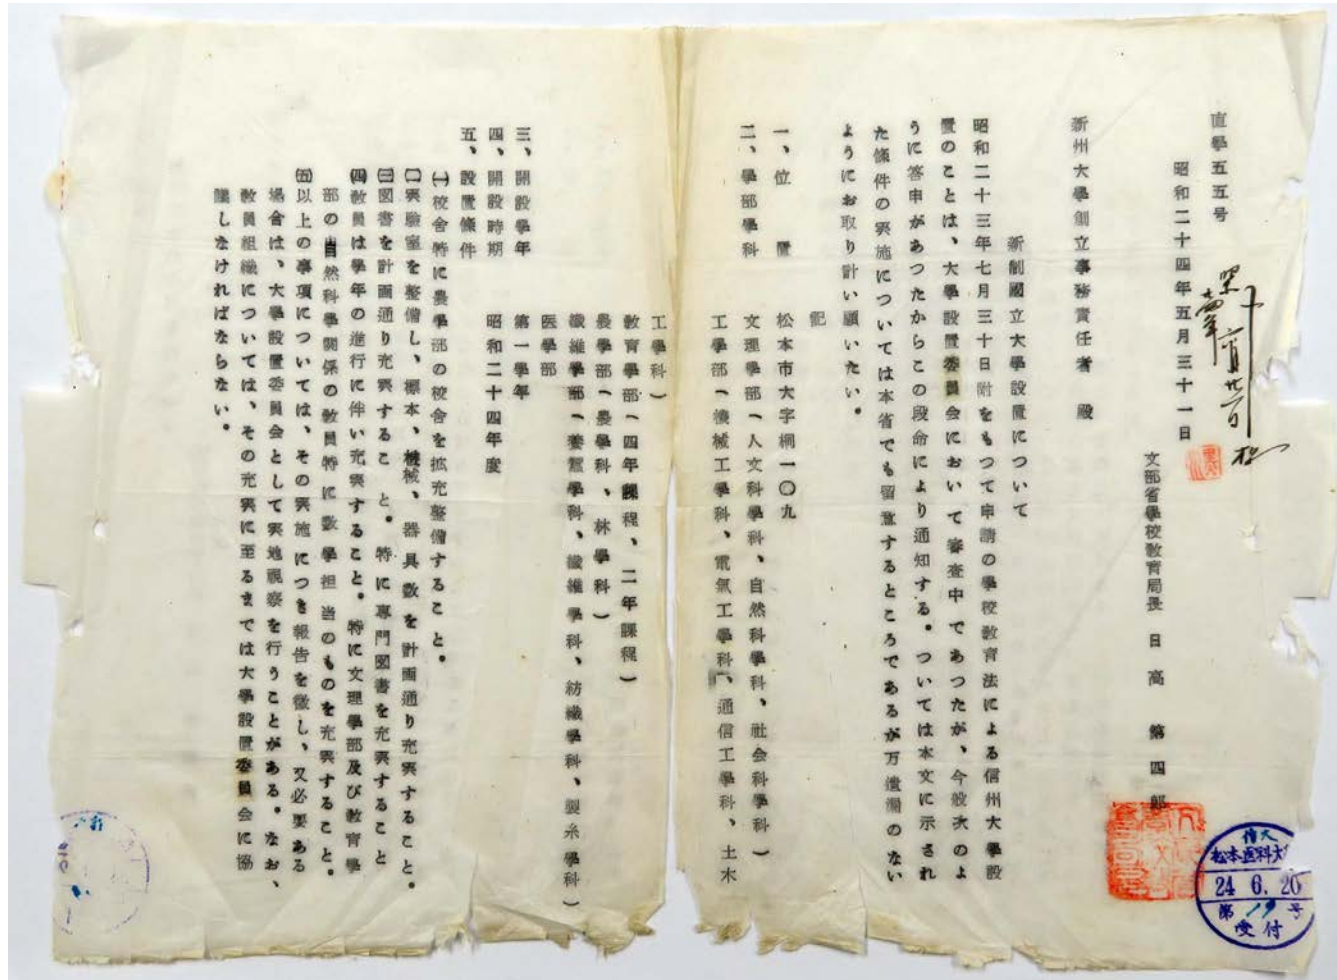 直學五五号
昭和二十四年五月三十一日
文部省學校教育局長　日　高　第　四　郎
新州大學創立事務責任者　殿
新制國立大學設置について
昭和二十三年七月三十日附をもつて申請の學校教育法による信州大學設
置のことは、大學設置委員会において審査中であつたが、今般次のよ
うに答申があつたからこの段命により通知する。ついては本文に示され
た條件の実施については本省でも留意するところであるが万遺漏のない
ようにお取り計い願いたい。
記
一、位　置　松本市大字桐一〇九
二、學部學科　文理學部（人文科學科、自然科學科、社会科學科）
工學部（機械工學科、電氣工學科、通信工學科、土木
工學科）
教育學部（四年課程、二年課程）
農學部（農學科、林學科）
纖維學部（養蚕學科、纖維學科、紡織學科、製糸學科）
医學部
三、開設學年　第一學年
四、開設時期　昭和二十四年度
五、設置條件
㈠校舎特に農學部の校舎を拡充整備すること。
㈡実驗室を整備し、標本、機械、器具数を計画通り充実すること。
㈢図書を計画通り充実すること。特に専門図書を充実すること
㈣教員は學年の進行に伴い充実すること。特に文理學部及び教育學
部の自然科學関係の教員特に数學担当のものを充実すること。
㈤以上の事項については、その実施につき報告を徴し、又必要ある
場合は、大學設置委員会として実地視察を行うことがある。なお、
教員組織については、その充実に至るまでは大學設置委員会に協
議しなければならない。
信大
松本医科大
24 6. 20
第19号
受付